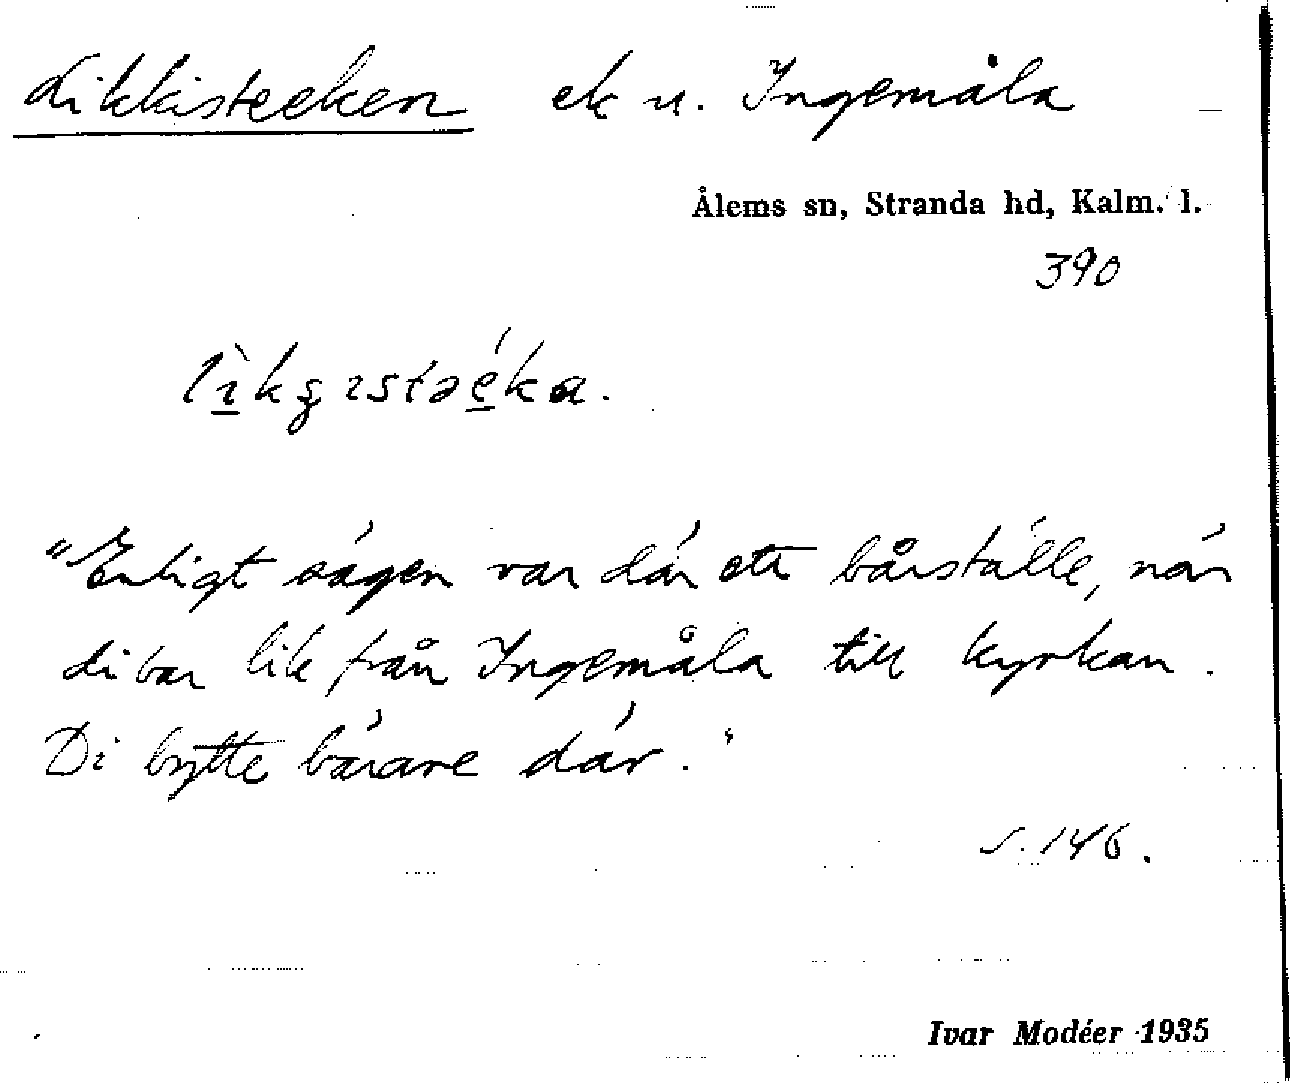 Likkisteeken ek u. Ingemåla
Ålems sn, Stranda hd, Kalm. l.
390
"Enligt sägen var där ett bårställe, när
di bar lik från Ingemåla till kyrkan.
Di bytte bärare där."
s. 146.
Ivar Modéer 1935